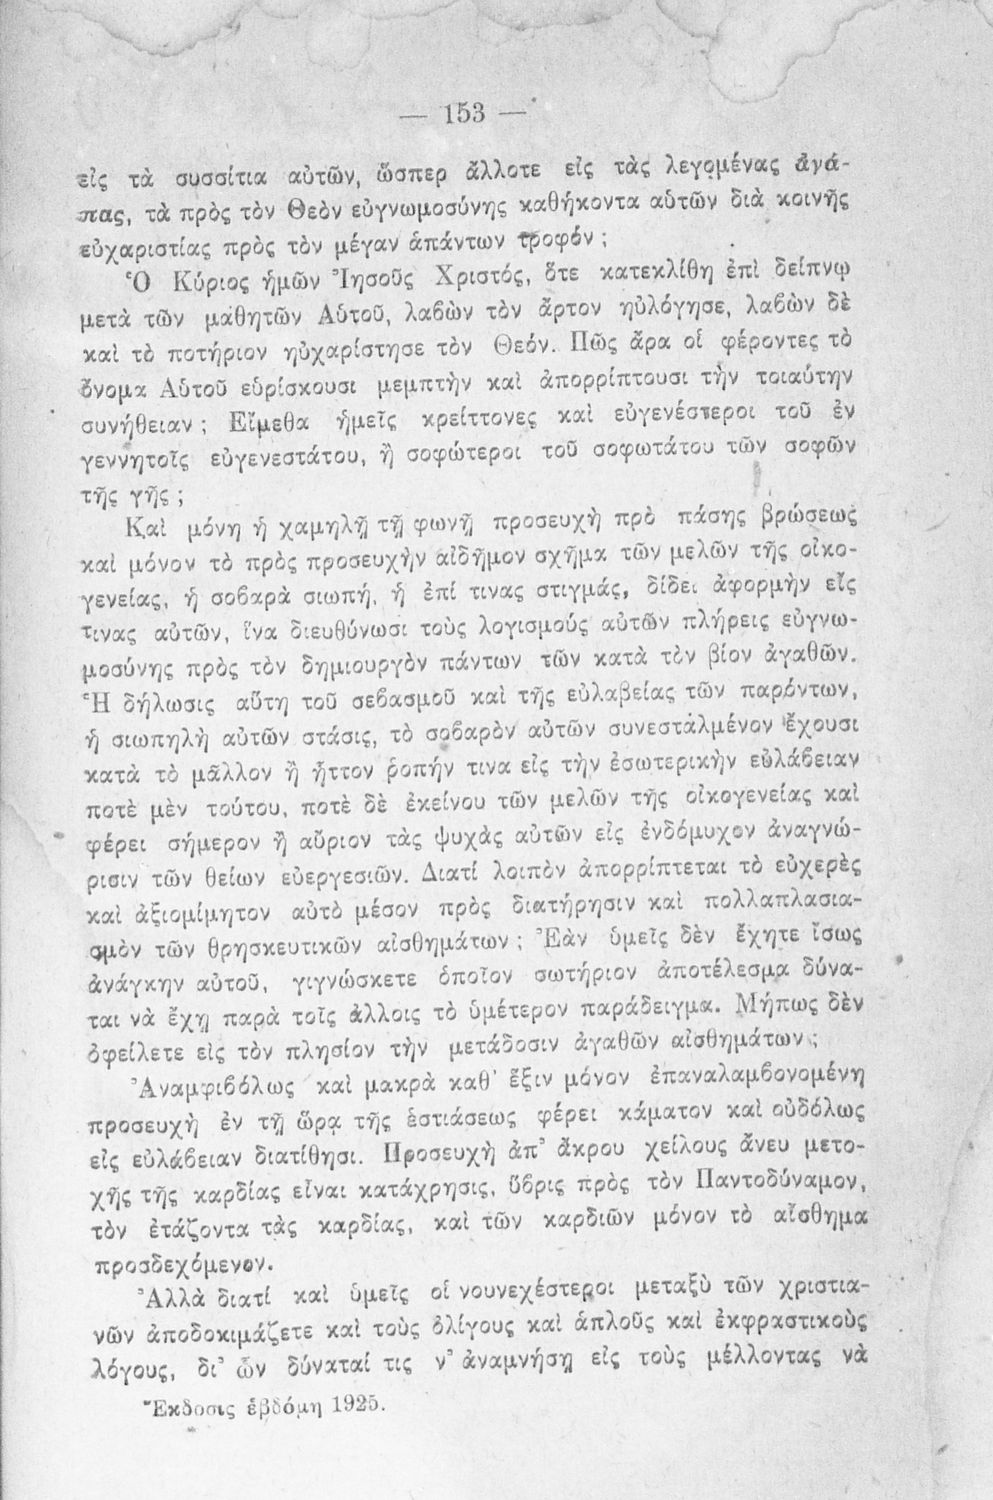 — 153 —
εἰς τὰ συσσίτια αὑτῶν, ὥσπερ ἄλλοτε εἰς τὰς λεγομένας ἀγά-
πας, τὰ πρὸς τὸν Θεὸν εὐγνωμοσύνης καθήκοντα αὑτῶν διὰ κοινῆς
εὐχαριστίας πρὸς τὸν μέγαν ἁπάντων τροφόν ;
Ὁ Κύριος ἡμῶν Ἰησοῦς Χριστός, ὅτε κατεκλίθη ἐπὶ δείπνῳ
μετὰ τῶν μαθητῶν Αὑτοῦ, λαβὼν τὸν ἄρτον ηὐλόγησε, λαβὼν δὲ
καὶ τὸ ποτήριον ηὐχαρίστησε τὸν Θεόν. Πῶς ἄρα οἱ φέροντες τὸ
ὄνομα Αὑτοῦ εὑρίσκουσι μεμπτὴν καὶ ἀπορρίπτουσι τὴν τοιαύτην
συνήθειαν ; Εἴμεθα ἡμεῖς κρείττονες καὶ εὐγενέστεροι τοῦ ἐν
γεννητοῖς εὐγενεστάτου, ἢ σοφώτεροι τοῦ σοφωτάτου τῶν σοφῶν
τῆς γῆς ;
Καὶ μόνη ἡ χαμηλῇ τῇ φωνῇ προσευχὴ πρὸ πάσης βρώσεως
καὶ μόνον τὸ πρὸς προσευχὴν αἰδῆμον σχῆμα τῶν μελῶν τῆς οἰκο-
γενείας, ἡ σοβαρὰ σιωπή, ἡ ἐπί τινας στιγμάς, δίδει ἀφορμὴν εἴς
τινας αὐτῶν, ἵνα διευθύνωσι τοὺς λογισμούς αὐτῶν πλήρεις εὐγνω-
μοσύνης πρὸς τὸν δημιουργὸν πάντων τῶν κατὰ τὸν βίον ἀγαθῶν.
Ἡ δήλωσις αὕτη τοῦ σεβασμοῦ καὶ τῆς εὐλαβείας τῶν παρόντων,
ἡ σιωπηλὴ αὐτῶν στάσις, τὸ σοβαρὸν αὐτῶν συνεστάλμένον ἔχουσι
κατὰ τὸ μᾶλλον ἢ ἧττον ῥοπήν τινα εἰς τὴν ἐσωτερικὴν εὐλάβειαν
ποτὲ μὲν τούτου, ποτὲ δὲ ἐκείνου τῶν μελῶν τῆς οἰκογενείας καὶ
φέρει σήμερον ἢ αὔριον τὰς ψυχὰς αὐτῶν εἰς ἐνδόμυχον ἀναγνώ-
ρισιν τῶν θείων εὐεργεσιῶν. Διατί λοιπὸν ἀπορρίπτεται τὸ εὐχερὲς
καὶ ἀξιομίμητον αὐτὸ μέσον πρὸς διατήρησιν καὶ πολλαπλασια-
σμὸν τῶν θρησκευτικῶν αἰσθημάτων ; Ἐὰν ὑμεῖς δὲν ἔχητε ἴσως
ἀνάγκην αὐτοῦ, γιγνώσκετε ὁποῖον σωτήριον ἀποτέλεσμα δύνα-
ται νὰ ἔχῃ παρὰ τοῖς ἄλλοις τὸ ὑμέτερον παράδειγμα. Μήπως δὲν
ὀφείλετε εἰς τὸν πλησίον τὴν μετάδοσιν ἀγαθῶν αἰσθημάτων ;
Ἀναμφιβόλως καὶ μακρὰ καθ' ἕξιν μόνον ἐπαναλαμβονομένη
προσευχὴ ἐν τῇ ὥρᾳ τῆς ἑστιάσεως φέρει κάματον καὶ οὐδόλως
εἰς εὐλάβειαν διατίθησι. Προσευχὴ ἀπ' ἄκρου χείλους ἄνευ μετο-
χῆς τῆς καρδίας εἶναι κατάχρησις, ὕβρις πρὸς τὸν Παντοδύναμον,
τὸν ἐτάζοντα τὰς καρδίας, καὶ τῶν καρδιῶν μόνον τὸ αἴσθημα
προσδεχόμενον.
Ἀλλὰ διατί καὶ ὑμεῖς οἱ νουνεχέστεροι μεταξὺ τῶν χριστια-
νῶν ἀποδοκιμάζετε καὶ τοὺς ὀλίγους καὶ ἁπλοῦς καὶ ἐκφραστικοὺς
λόγους, δι' ὧν δύναταί τις ν' ἀναμνήσῃ εἰς τοὺς μέλλοντας νὰ
Ἔκδοσις ἑβδόμη 1925.